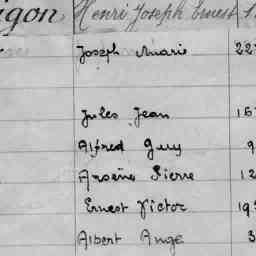 igon Henri Joseph Ernest
Joseph Marie 22
Jules Jean 15
Alfred Guy 9
Arsène Pierre 12
Ernest Victor 19
Albert Ange 3